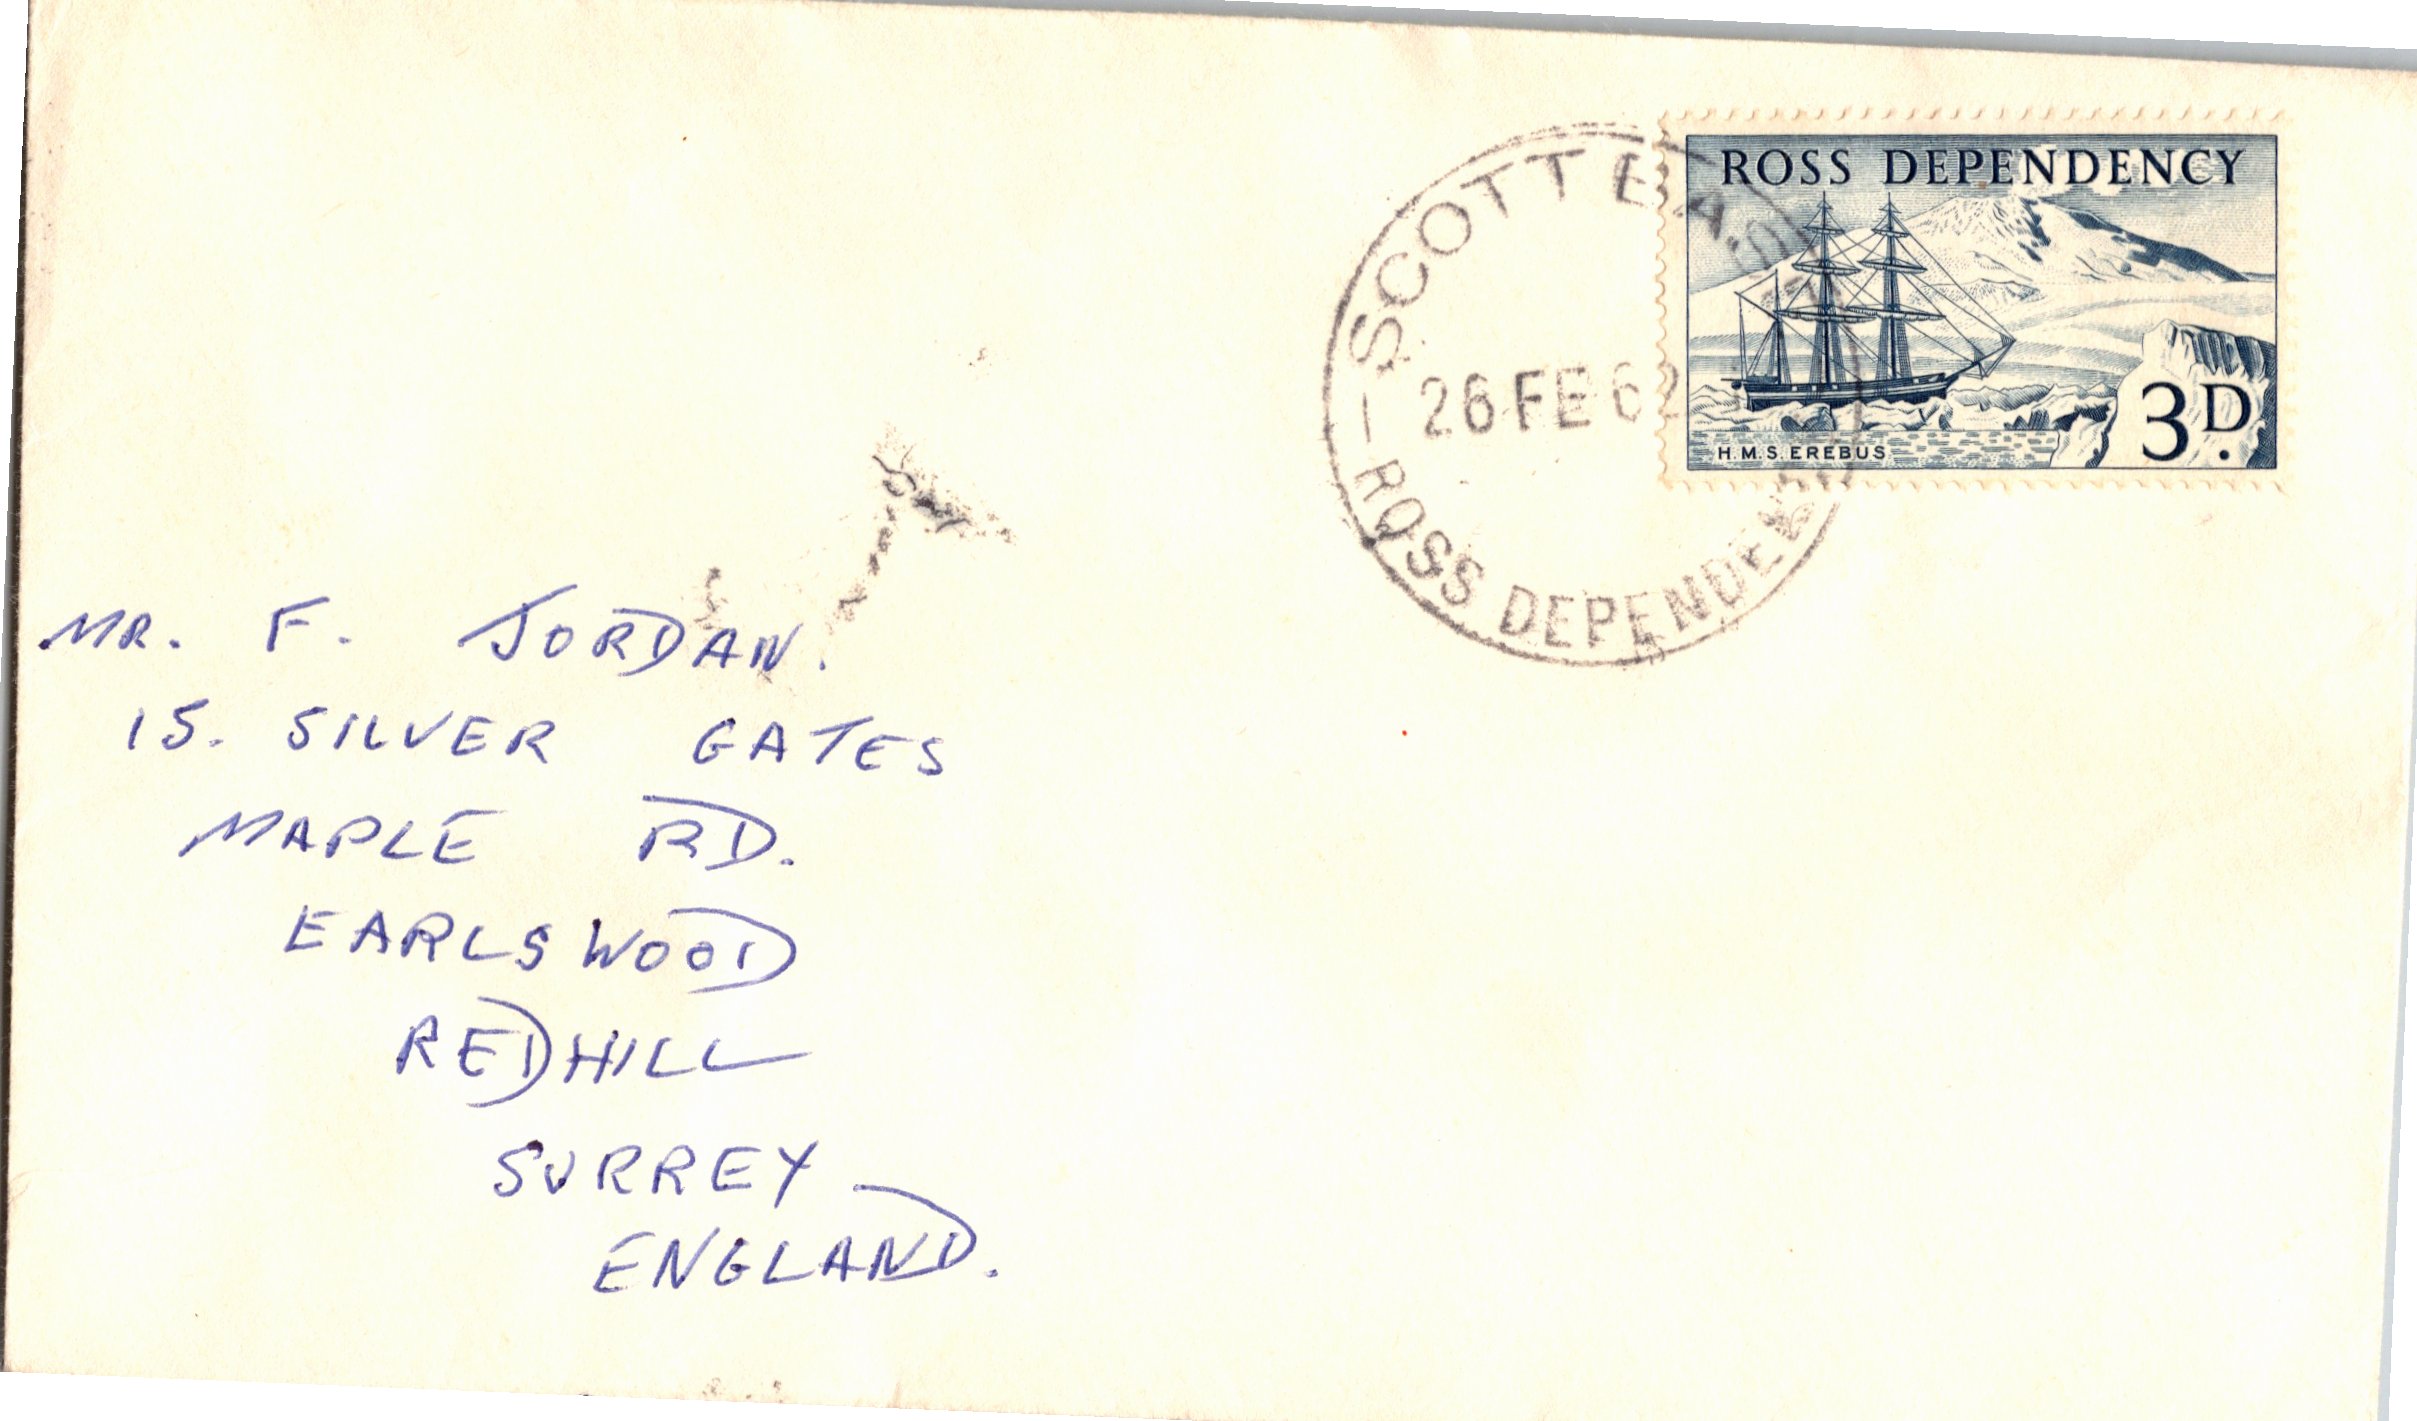 ROSS DEPENDENCY
H.M.S. EREBUS
3D.
SCOTT BASE
26 FE 62
ROSS DEPENDENCY
MR. F. JORDAN.
15. SILVER GATES
MAPLE RD.
EARLSWOOD
REDHILL
SURREY
ENGLAND.